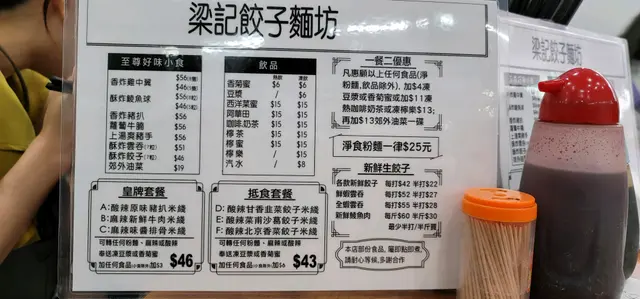 梁記餃子麵坊
至尊好味小食
香炸雞中翼 $56
$46
酥炸鯪魚球 $56
$46
香炸豬扒 $56
蘿蔔牛腩 $56
上湯豬豬手 $56
酥炸雲吞 $51
酥炸餃子 $46
郊外油菜 $19
飲品
熱飲 凍飲
香菊蜜 $6 $6
豆漿 / $6
西洋菜蜜 $15 $15
阿華田 $15 $15
咖啡.奶茶 $15 $15
檸茶 $15 $15
檸蜜 $15 $15
檸樂 / $15
汽水 / $8
一餐二優惠
凡惠顧以上任何食品(淨
粉麵,飲品除外),加$4凍
豆漿或香菊蜜或加$11凍
熱咖啡奶茶或凍檸樂$13;
再加$13郊外油菜一碟
淨食粉麵一律$25元
新鮮生餃子
各款新鮮餃子 每打$42 半打$22
鮮蝦雲吞 每打$52 半打$27
全蝦雲吞 每打$55 半打$28
新鮮鯪魚肉 每斤$60 半斤$30
最少半打/半斤賣
皇牌套餐
A:酸辣原味豬扒米綫
B:麻辣新鮮牛肉米綫
C:麻辣味醬排骨米綫
可轉任何粉麵、麻辣或酸辣
奉送凍豆漿或香菊蜜
加任何食品 加$3
$46
抵食套餐
D:酸辣甘香韭菜餃子米綫
E:酸辣菜甫沙葛餃子米綫
F:酸辣北京香菜餃子米綫
可轉任何粉麵、麻辣或酸辣
奉送凍豆漿或香菊蜜
加任何食品 加$6
$43
本店部份食品,屬即點即煮,
請耐心等候,多謝合作
梁記餃子麵坊